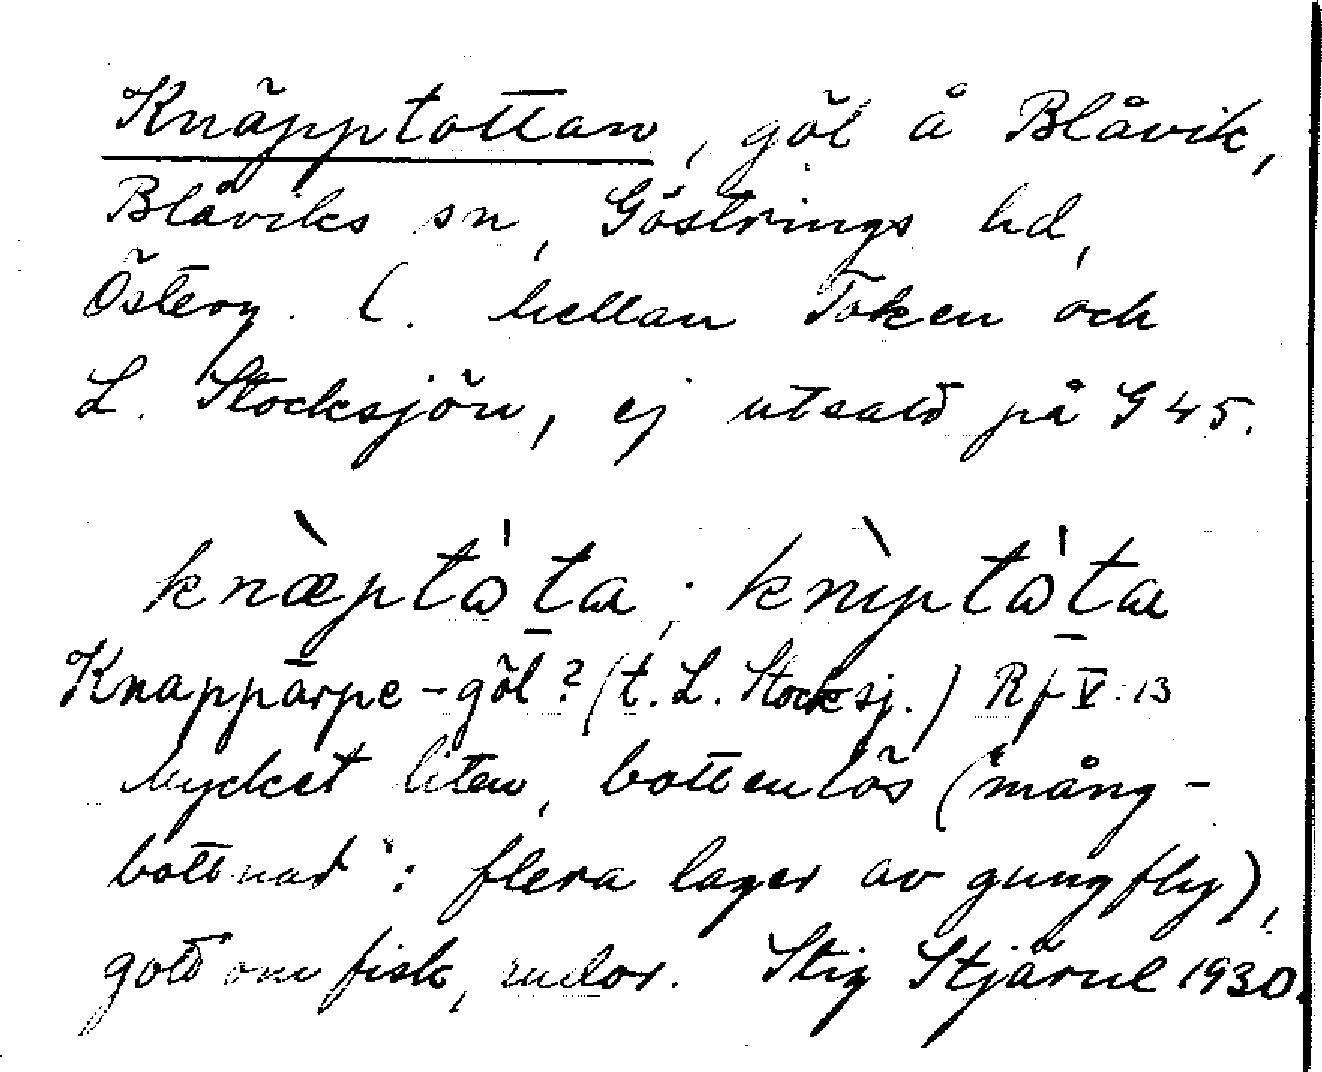 Knäpptottan, göl å Blåvik,
Blåviks sn, Göstrings hd,
Österg. (. Mellan Token och
L. Stocksjön, ej utsatt på G 45.
knæ̀ptɷ̍ta; knìptɷ̍ta
Knappärpe-göl? (t. L. Stocksj.) Rf V:13
Mycket liten, bottenlös ("mång-
bottnad": flera lager av gungfly),
gott om fisk, rudor. Stig Stjärne 1930.